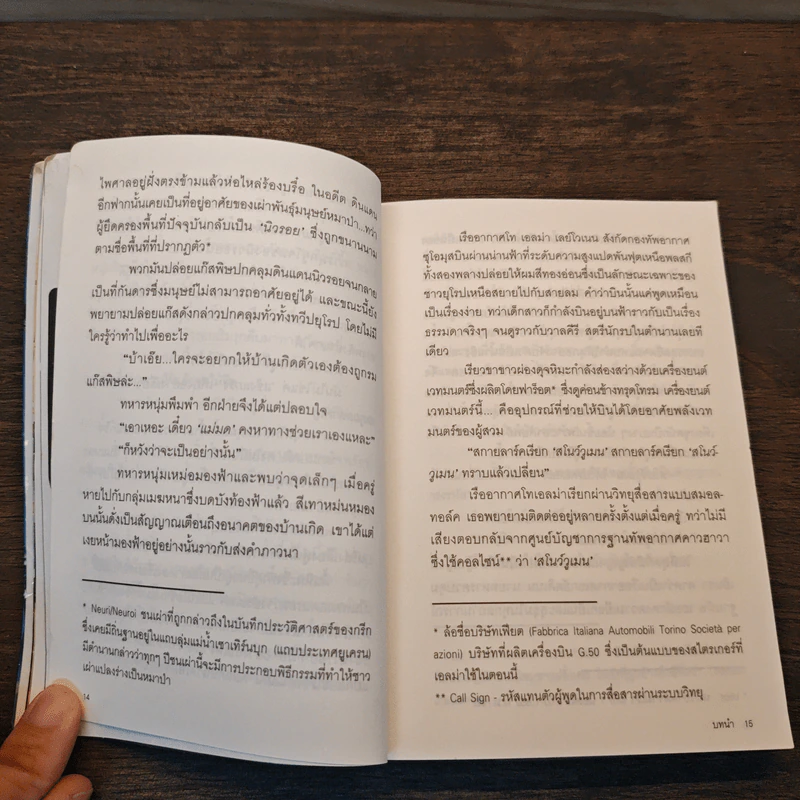 ไพศาลอยู่ฝั่งตรงข้ามแล้วห่อไหล่ร้องบรื๋อ ในอดีต ดินแดน
อีกฟากนั้นเคยเป็นที่อยู่อาศัยของเผ่าพันธุ์มนุษย์หมาป่า...ทว่า
ผู้ยึดครองพื้นที่ปัจจุบันกลับเป็น 'นิวรอย' ซึ่งถูกขนานนาม
ตามชื่อพื้นที่ที่ปรากฏตัว*
พวกมันปล่อยแก๊สพิษปกคลุมดินแดนนิวรอยจนกลาย
เป็นที่กันดารซึ่งมนุษย์ไม่สามารถอาศัยอยู่ได้ และขณะนี้ยัง
พยายามปล่อยแก๊สดังกล่าวปกคลุมทั่วทั้งทวีปยุโรป โดยไม่มี
ใครรู้ว่าทำไปเพื่ออะไร
"บ้าเอ๊ย...ใครจะอยากให้บ้านเกิดตัวเองต้องถูกรม
แก๊สพิษล่ะ..."
ทหารหนุ่มพึมพำ อีกฝ่ายจึงได้แต่ปลอบใจ
"เอาเหอะ เดี๋ยว 'แม่มด' คงหาทางช่วยเราเองแหละ"
"ก็หวังว่าจะเป็นอย่างนั้น"
ทหารหนุ่มเหม่อมองฟ้าและพบว่าจุดเล็กๆ เมื่อครู่
หายไปกับกลุ่มเมฆหนาซึ่งบดบังท้องฟ้าแล้ว สีเทาหม่นหมอง
บนนั้นดั่งเป็นสัญญาณเตือนถึงอนาคตของบ้านเกิด เขาได้แต่
เงยหน้ามองฟ้าอยู่อย่างนั้นราวกับส่งคำภาวนา
* Neuri/Neuroi ชนเผ่าที่ถูกกล่าวถึงในบันทึกประวัติศาสตร์ของกรีก
ซึ่งเคยมีถิ่นฐานอยู่ในแถบลุ่มแม่น้ำเซาเทิร์นบุก (แถบประเทศยูเครน)
มีตำนานกล่าวว่าทุกๆ ปีชนเผ่านี้จะมีการประกอบพิธีกรรมที่ทำให้ชาว
เผ่าแปลงร่างเป็นหมาป่า
14
เรืออากาศโท เอลม่า เลย์โวเนน สังกัดกองทัพอากาศ
ซุโอมุสบินผ่านน่านฟ้าที่ระดับความสูงแปดพันฟุตเหนือพลสกี
ทั้งสองพลางปล่อยให้ผมสีทองอ่อนซึ่งเป็นลักษณะเฉพาะของ
ชาวยุโรปเหนือสยายไปกับสายลม คำว่าบินนั้นแค่พูดเหมือน
เป็นเรื่องง่าย ทว่าเด็กสาวก็โบยบินอยู่บนฟ้าราวกับเป็นเรื่อง
ธรรมดาจริงๆ จนดูราวกับวาลคีรี สตรีนักรบในตำนานเลยที
เดียว
เรียวขาขาวผ่องดุจหิมะกำลังส่องสว่างด้วยเครื่องยนต์
เวทมนตร์ซึ่งผลิตโดยฟาร็อต* ซึ่งดูค่อนข้างทรุดโทรม เครื่องยนต์
เวทมนตร์นี้... คืออุปกรณ์ที่ช่วยให้บินได้โดยอาศัยพลังเวท
มนตร์ของผู้สวม
"สกายลาร์คเรียก 'สโนว์วูเมน' สกายลาร์คเรียก 'สโนว์-
วูเมน' ทราบแล้วเปลี่ยน"
เรืออากาศโทเอลม่าเรียกผ่านวิทยุสื่อสารแบบสมอล-
ทอล์ค เธอพยายามติดต่ออยู่หลายครั้งตั้งแต่เมื่อครู่ ทว่าไม่มี
เสียงตอบกลับจากศูนย์บัญชาการฐานทัพอากาศคาวฮาวา
ซึ่งใช้คอลไซน์** ว่า 'สโนว์วูเมน'
* ล้อชื่อบริษัทเฟียต (Fabbrica Italiana Automobili Torino Società per
azioni) บริษัทที่ผลิตเครื่องบิน G.50 ซึ่งเป็นต้นแบบของสไตรเกอร์ที่
เอลม่าใช้ในตอนนี้
** Call Sign - รหัสแทนตัวผู้พูดในการสื่อสารผ่านระบบวิทยุ
บทนำ 15